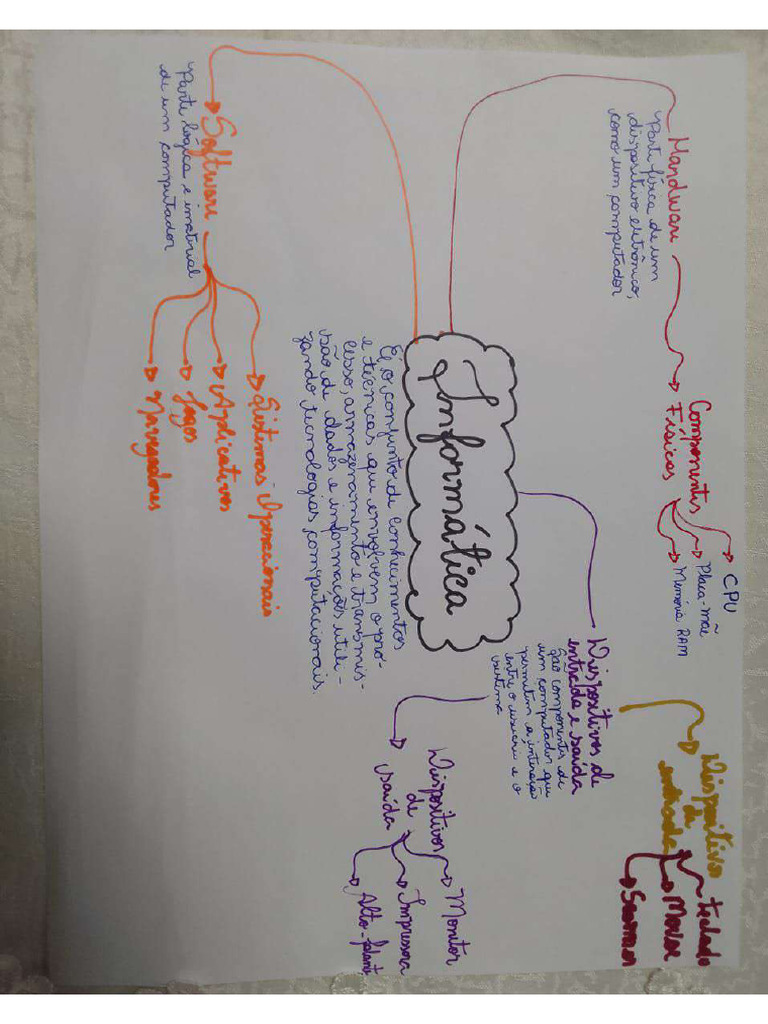 Informática
É o conjunto de conhecimentos
e técnicas que envolvem o pro-
cesso, armazenamento e transmis-
são de dados e informações, utili-
zando tecnologias computacionais.
Hardware
Parte física de um
dispositivo eletrônico,
como um computador
Componentes
Físicos
CPU
Placa-mãe
Memória RAM
Dispositivos de
entrada e saída
São componentes de
um computador que
permitem a interação
entre o usuário e o
sistema
Dispositivo
de
entrada
Teclado
Mouse
Scanner
Dispositivos
de
saída
Monitor
Impressora
Alto-falant
Software
Parte lógica e imaterial
de um computador
Sistemas Operacionais
Aplicativos
Jogos
Navegadores